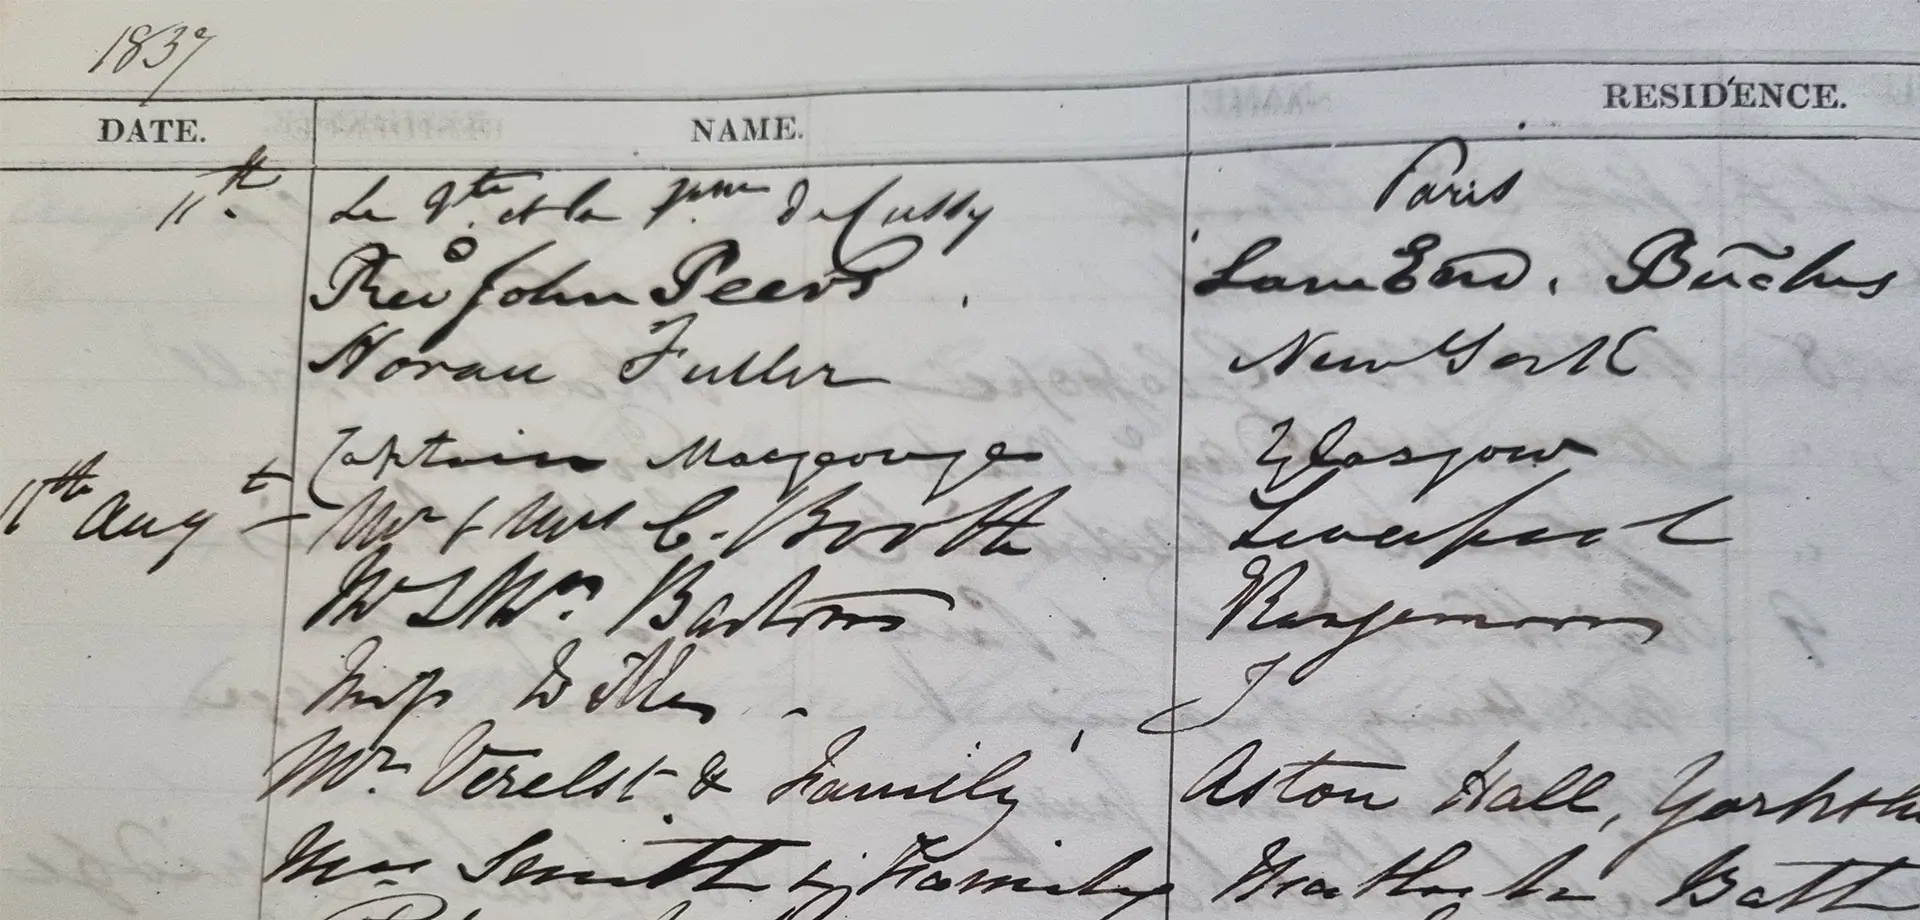 1837
DATE. NAME. RESIDENCE.
11th. Le Vte. et la Vtesse De Cussy Paris
Revd John Peers Lane End. Bucks
Horace Fuller New York
Captain Macgeorge Glasgow
11th Augt Mr & Mrs C. Booth Liverpool
Mr & Mrs Rangemoor
Miss
Mr. Verelst & Family Aston Hall,
Mrs Smith & Family Bath